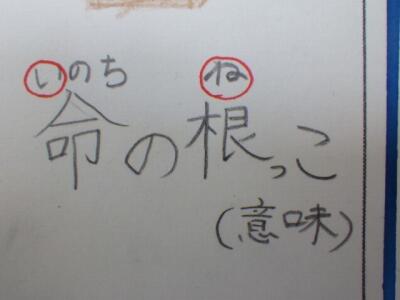 いのち ね
命の根っこ
(意味)